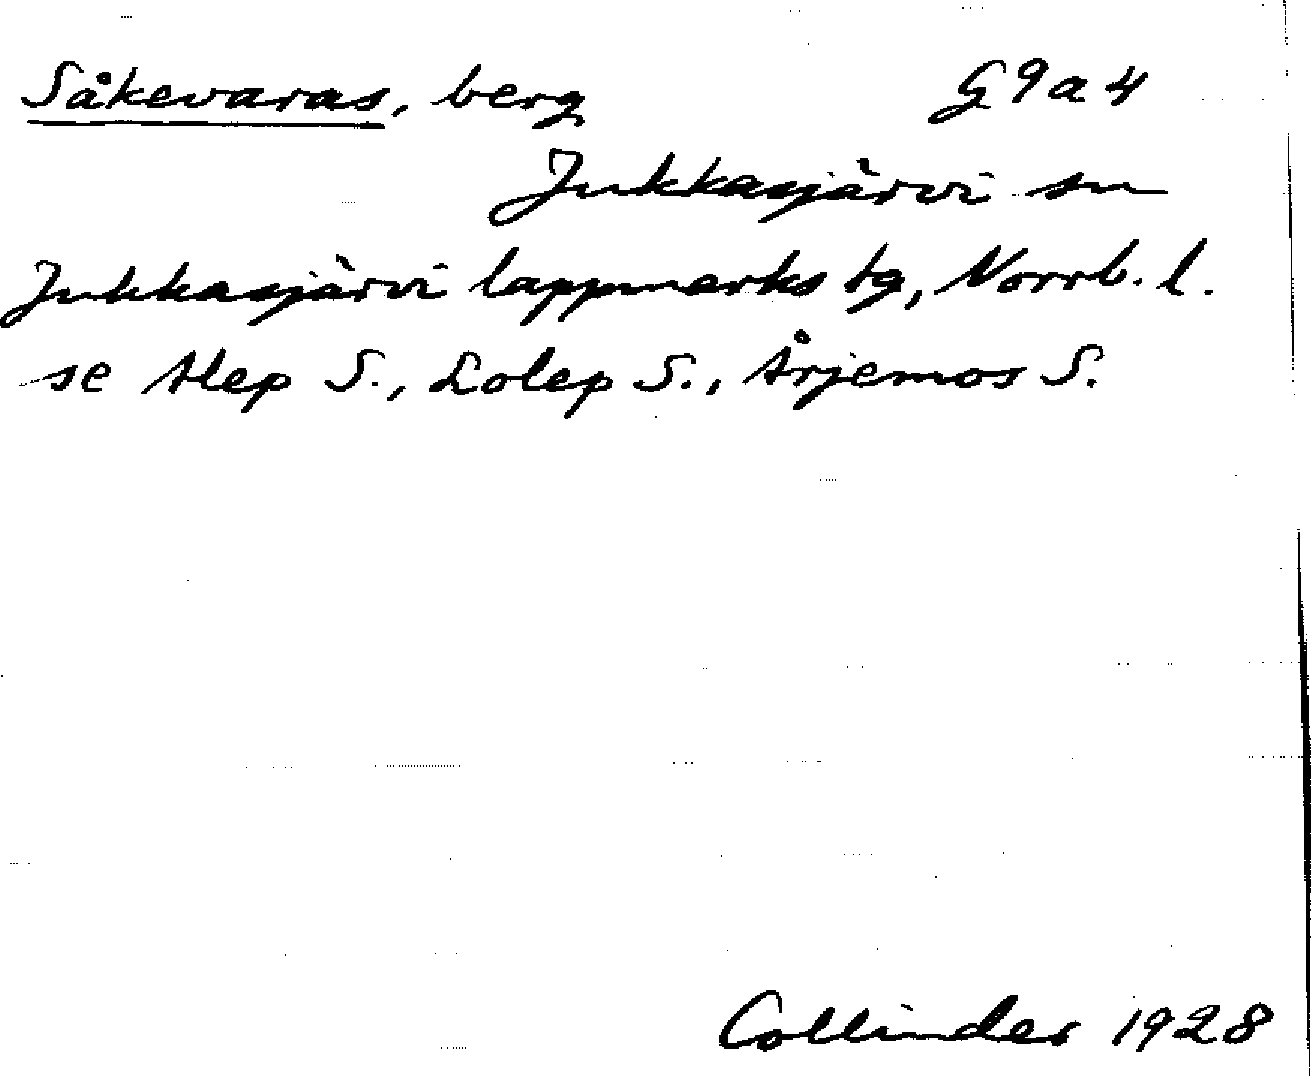 Såkevaras, berg G9a4
Jukkasjärvi sn
Jukkasjärvi lappmarks tg, Norrb. l.
se Alep S., Lolep S., Årjemos S.
Collinder 1928